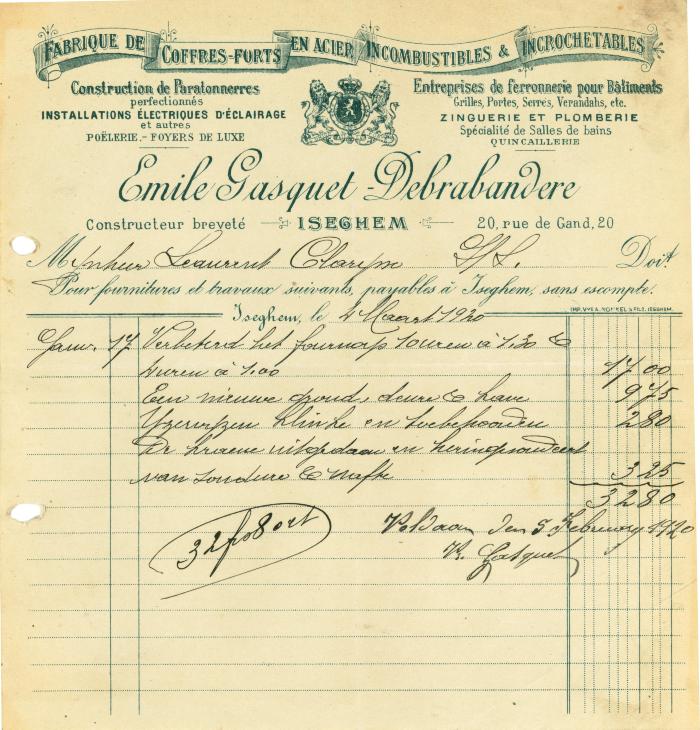 FABRIQUE DE COFFRES-FORTS EN ACIER INCOMBUSTIBLES & INCROCHETABLES
Construction de Paratonnerres
perfectionnés
INSTALLATIONS ÉLECTRIQUES D'ÉCLAIRAGE
et autres
POËLERIE.- FOYERS DE LUXE
Entreprises de ferronnerie pour Bâtiments
Grilles, Portes, Serres, Verandahs, etc.
ZINGUERIE ET PLOMBERIE
Spécialité de Salles de bains
QUINCAILLERIE
Emile Gasquet-Debrabandere
Constructeur breveté ISEGHEM 20, rue de Gand, 20
Mynheer Laurent Doit
Pour fournitures et travaux suivants, payables à Iseghem, sans escompte.
Iseghem, le 4 Maart 1920
Janv. 17 Verbeterd het fournap 10 uren à 1.30 &
uren à 1.00 17 00
Een nieuwe grond, deure & 9 75
klinke en toebehooden 2 80
De uitgedaan en
van soudure & nafte 3 25
32 80
Voldaan den 5 Februay 1920
32 fr 80 ct
Gasquet